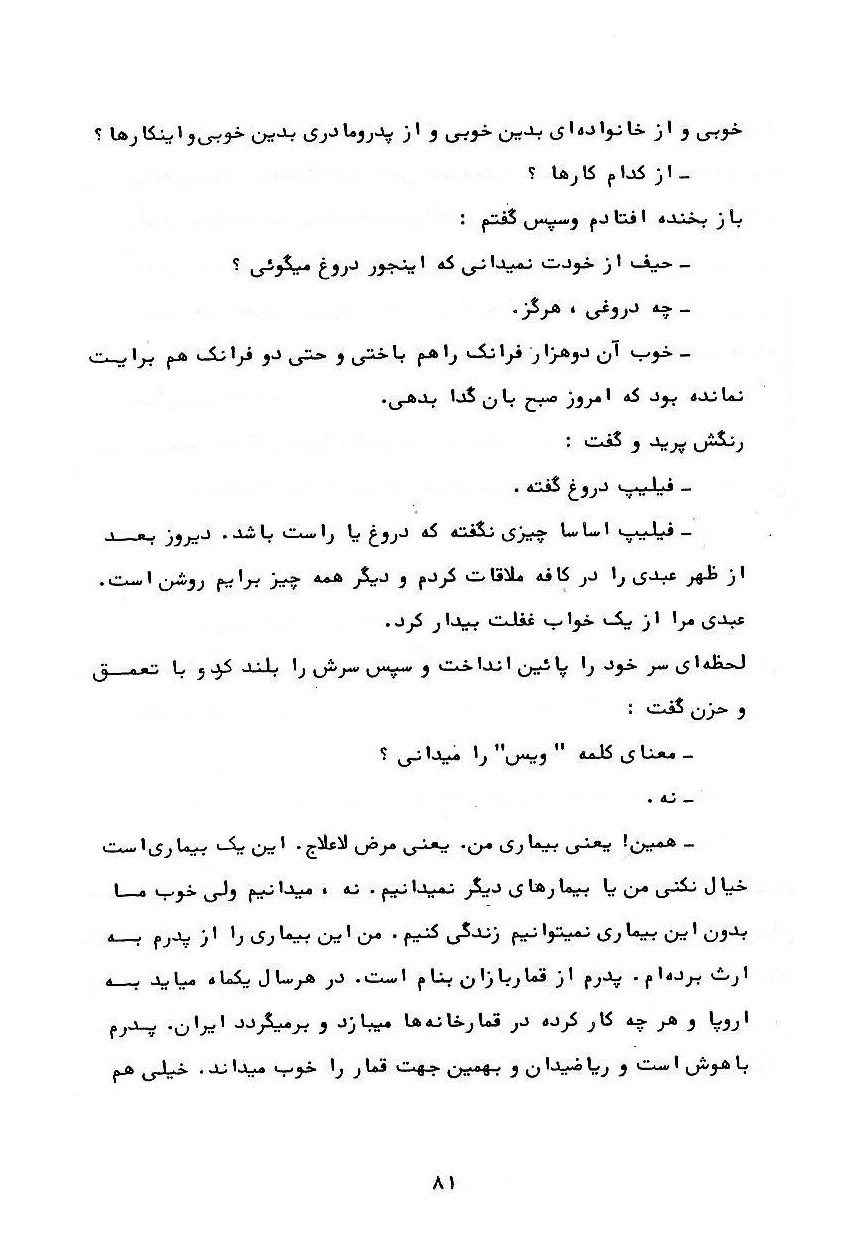 خوبی و از خانواده‌ای بدین خوبی و از پدرومادری بدین خوبی‌و اینکارها ؟
ـ از کدام کارها ؟
باز بخنده افتادم وسپس گفتم :
ـ حیف از خودت نمیدانی که اینجور دروغ میگوئی ؟
ـ چه دروغی ، هرگز.
ـ خوب آن دوهزار فرانک راهم باختی و حتی دو فرانک هم برایـت
نمانده بود که امروز صبح بان گدا بدهی.
رنگش پرید و گفت :
ـ فیلیپ دروغ گفته .
ـ فیلیپ اساسا چیزی نگفته که دروغ یا راست باشد. دیروز بعـد
از ظهر عبدی را در کافه ملاقات کردم و دیگر همه چیز برایم روشن است.
عبدی مرا از یک خواب غفلت بیدار کرد.
لحظه‌ای سر خود را پائین انداخت و سپس سرش را بلند کرد و با تعمـق
و حزن گفت :
ـ معنای کلمه " ویس" را میدانی ؟
ـ نه .
ـ همین! یعنی بیماری من. یعنی مرض لاعلاج. این یک بیماری‌است
خیال نکنی من یا بیمارهای دیگر نمیدانیم. نه ، میدانیم ولی خوب مـا
بدون این بیماری نمیتوانیم زندگی کنیم. من این بیماری را از پدرم بـه
ارث برده‌ام. پدرم از قماربازان بنام است. در هرسال یکماه میاید بـه
اروپا و هر چه کار کرده در قمارخانه‌ها میبازد و برمیگردد ایران. پـدرم
باهوش است و ریاضیدان و بهمین جهت قمار را خوب میداند. خیلی هم
۸۱